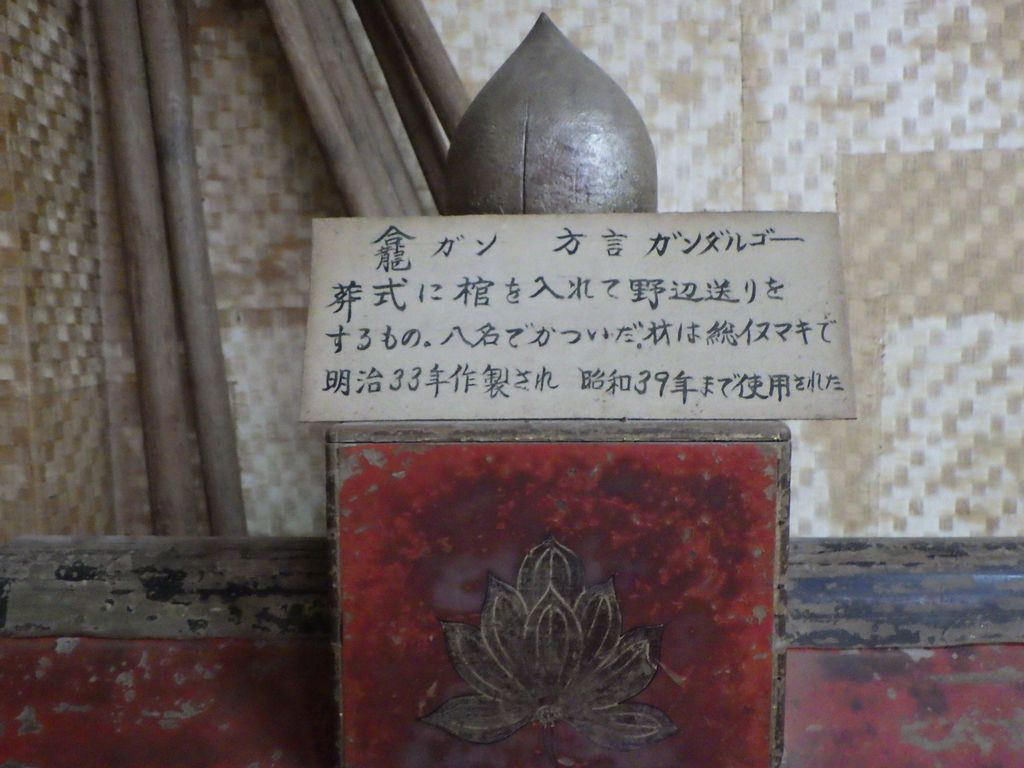 龕 ガン 方言 ガンダルゴー
葬式に棺を入れて野辺送りを
するもの。八名でかついだ。材は総イヌマキで
明治33年作製され 昭和39年まで使用された